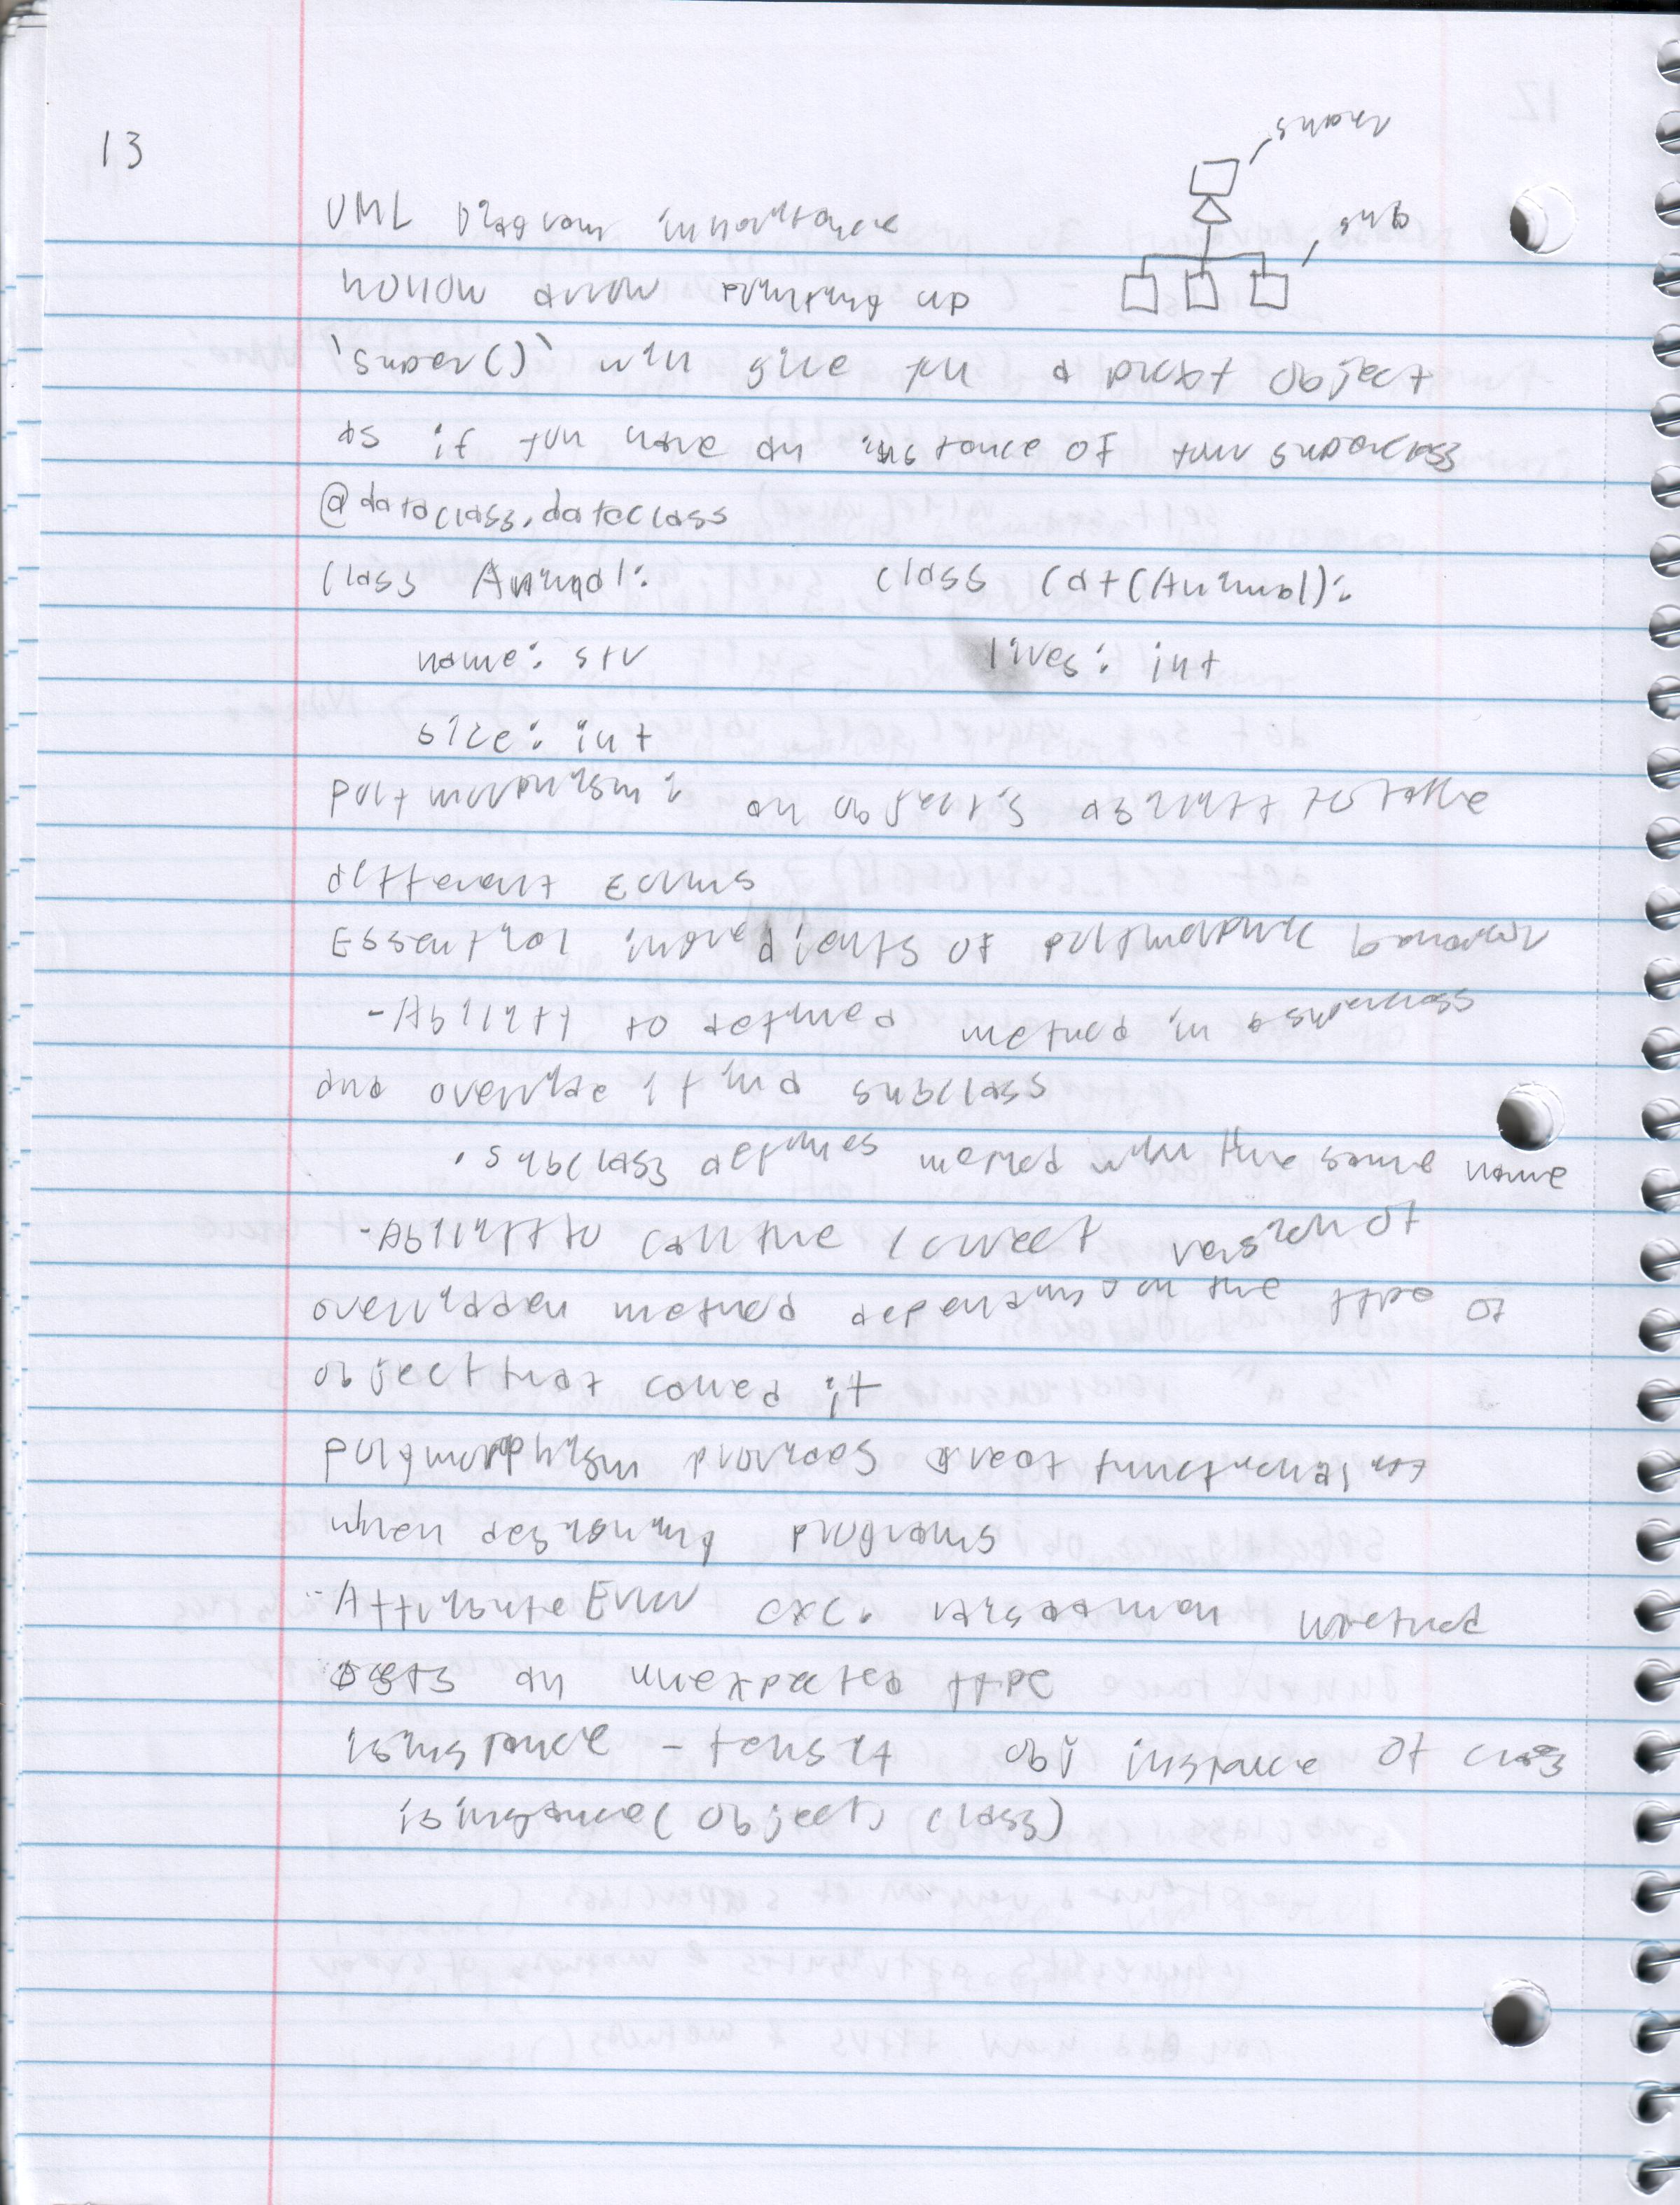 13
super
sub
UML Diagram inheritance
hollow arrow pointing up
'super()' will give you a proxy object
as if you have an instance of your superclass
@dataclass.dataclass
class Animal:    class Cat(Animal):
name: str    lives: int
size: int
polymorphism: an object's ability to take
different forms
Essential ingredients of polymorphic behavior
-Ability to define a method in a superclass
and override it in a subclass
. subclass defines method with the same name
-Ability to call the correct version of
overridden method depending on the type of
object that called it
polymorphism provides great functionality
when designing programs
-AttributeError exc. raised when method
gets an unexpected type
isinstance - tests if obj instance of class
isinstance(object, class)